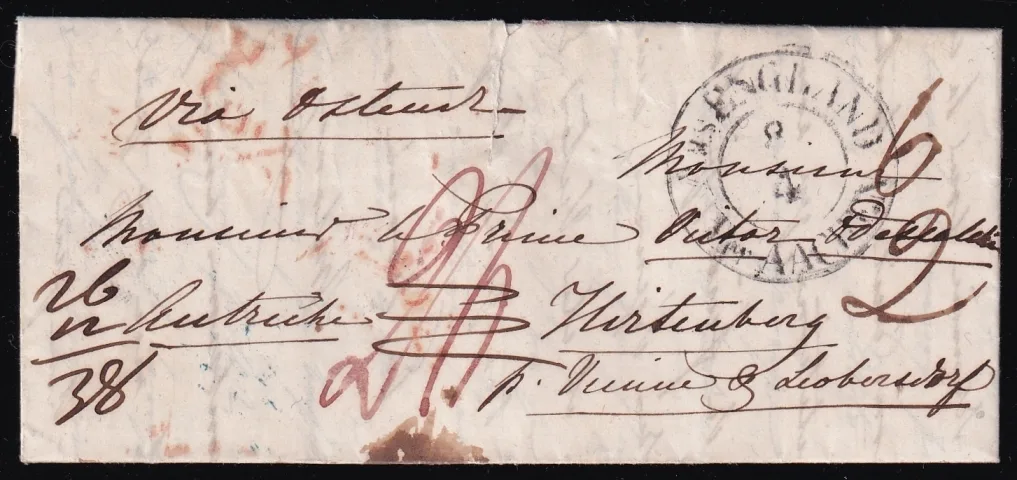 via Ostende
AUS ENGLAND
8
4
Monsieur
6
Monsieur le Prince Victor
2
26
12
38
Autriche
Hirtenberg
p. Vienne & Leobersdorf